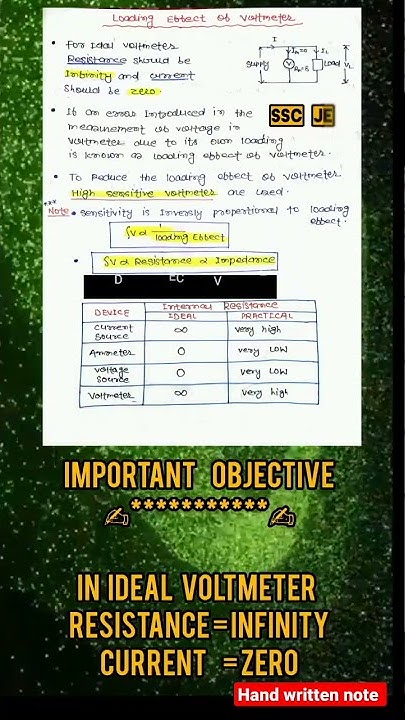 Loading Effect of Voltmeter
• For Ideal voltmeter
Resistance should be
Infinity and current
should be zero.
I
IL
Supply
V
Load
VL
• If an error Introduced in the
measurement of voltage in
voltmeter due to its own loading
is known as loading effect of voltmeter.
SSC JE
• To Reduce the loading effect of voltmeter
High sensitive voltmeter are used.
*** Note • Sensitivity is Inversly proportional to loading
effect.
SV ∝ 1/loading Effect
• SV ∝ Resistance ∝ Impedance
D EC V
DEVICE
Internal Resistance
IDEAL PRACTICAL
Current Source ∞ very high
Ammeter 0 very LOW
voltage source 0 very LOW
Voltmeter ∞ very high
IMPORTANT OBJECTIVE
✍***********✍
IN IDEAL VOLTMETER
RESISTANCE=INFINITY
CURRENT =ZERO
Hand written note